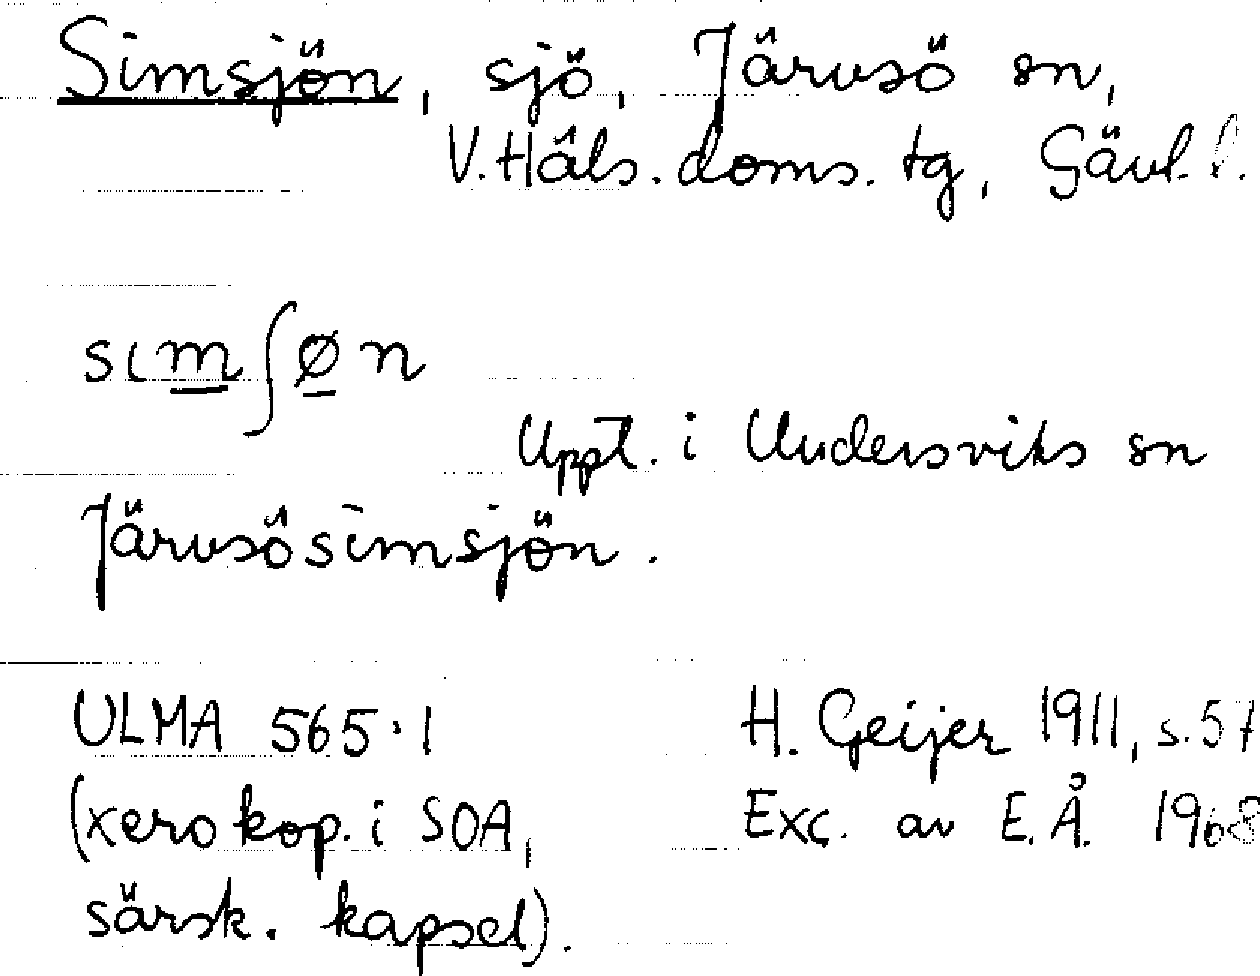 Simsjön, sjö, Järvsö sn,
V. Häls. doms. tg, Gävl. l.
sımʃøn
Uppt. i Undersviks sn
Järvsösimsjön.
ULMA 565:1 H. Geijer 1911, s. 57
(xerokop. i SOA, Exc. av E.Å. 1968
särsk. kapsel).